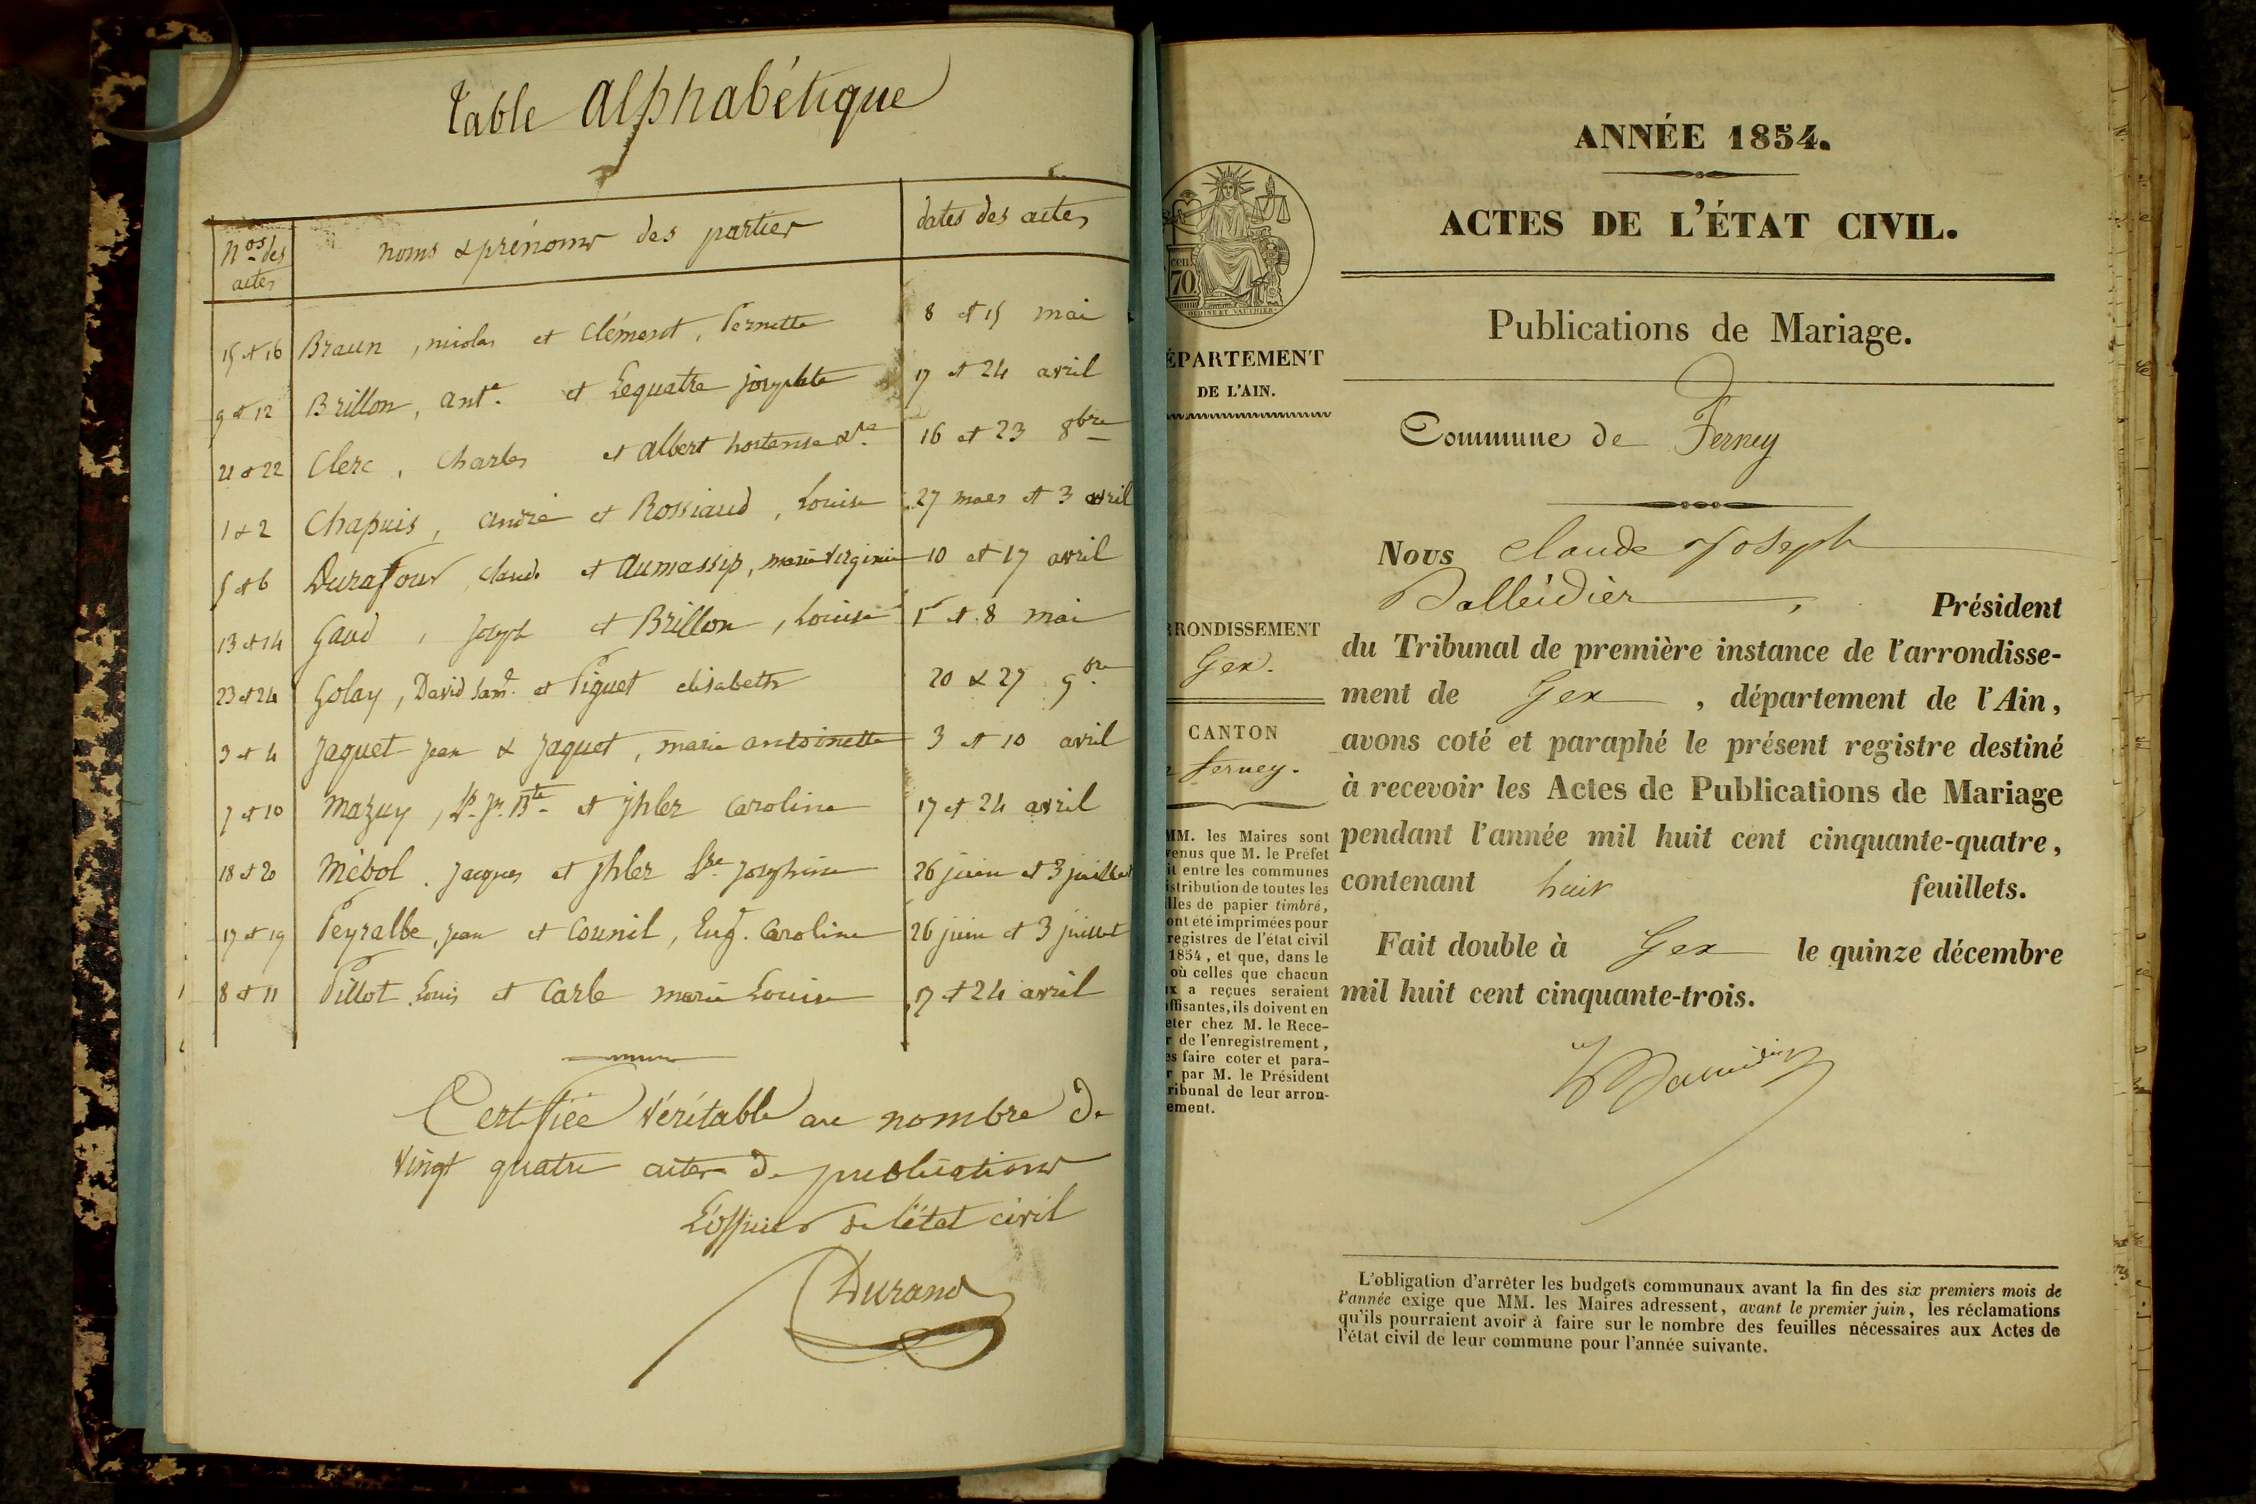 Table Alphabétique
Nos des actes
noms & prénoms des parties
dates des actes
15 et 16 Braun, nicolas et Clément, Pernette 8 et 15 mai
9 et 12 Brillon, ante et Lequatre josephte 17 et 24 avril
21 et 22 Clerc, Charles et albert hortense 16 et 23 8bre
1 & 2 Chapuis, andré et Rossiaud, Louise 27 mars et 3 avril
5 et 6 Durafour, claude et aumassip, marie virginie 10 et 17 avril
13 et 14 Gaud, joseph et Brillon, Louise 1er et 8 mai
23 et 24 Golay, David Saml et Piguet elisabeth 20 & 27 9bre
3 et 4 jaquet jean & jaquet, marie antoinette 3 et 10 avril
7 et 10 mazuy, Bte et jhler Caroline 17 et 24 avril
18 et 20 Mébol. jacques et jhler joséphine 26 juin et 3 juillet
17 et 19 Peyralbe, jean et Counil, Eug. Caroline 26 juin et 3 juillet
8 et 11 Pillot Louis et Carle marie Louise 17 et 24 avril
Certifiée véritable au nombre de
vingt quatre actes de publications
L'officier de l'état civil
Durand
ANNÉE 1854.
ACTES DE L'ÉTAT CIVIL.
cen. 70
Publications de Mariage.
ÉPARTEMENT
DE L'AIN.
Commune de Ferney
RRONDISSEMENT
Gex.
CANTON
Ferney.
MM. les Maires sont
venus que M. le Préfet
it entre les communes
istribution de toutes les
lles de papier timbré,
ont été imprimées pour
registres de l'état civil
1854, et que, dans le
où celles que chacun
x a reçues seraient
ffisantes, ils doivent en
eter chez M. le Rece-
r de l'enregistrement,
es faire coter et para-
r par M. le Président
ribunal de leur arron-
ement.
Nous Claude Joseph
Balleidier, Président
du Tribunal de première instance de l'arrondisse-
ment de Gex, département de l'Ain,
avons coté et paraphé le présent registre destiné
à recevoir les Actes de Publications de Mariage
pendant l'année mil huit cent cinquante-quatre,
contenant huit feuillets.
Fait double à Gex le quinze décembre
mil huit cent cinquante-trois.
L'obligation d'arrêter les budgets communaux avant la fin des six premiers mois de
l'année exige que MM. les Maires adressent, avant le premier juin, les réclamations
qu'ils pourraient avoir à faire sur le nombre des feuilles nécessaires aux Actes de
l'état civil de leur commune pour l'année suivante.